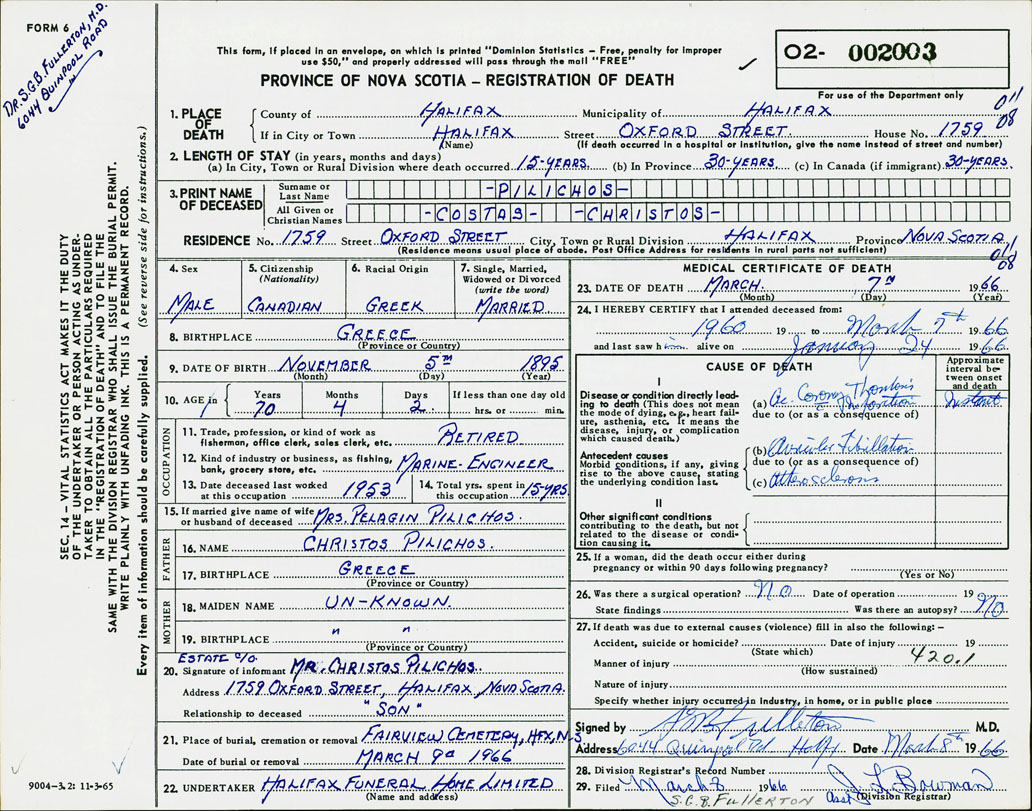 FORM 6
DR. S.G.B. FULLERTON, M.D.
6044 QUINPOOL ROAD
This form, if placed in an envelope, on which is printed "Dominion Statistics – Free, penalty for improper
use $50," and properly addressed will pass through the mail "FREE"
PROVINCE OF NOVA SCOTIA – REGISTRATION OF DEATH
02- 002003
For use of the Department only
011
08
1. PLACE OF DEATH
County of HALIFAX Municipality of HALIFAX
If in City or Town HALIFAX Street OXFORD STREET. House No. 1759
(Name) (If death occurred in a hospital or institution, give the name instead of street and number)
2. LENGTH OF STAY (in years, months and days)
(a) In City, Town or Rural Division where death occurred 15-YEARS. (b) In Province 30-YEARS. (c) In Canada (if immigrant) 30-YEARS.
3. PRINT NAME OF DECEASED
Surname or Last Name -PILICHOS-
All Given or Christian Names -COSTAS- -CHRISTOS-
RESIDENCE No. 1759 Street OXFORD STREET City, Town or Rural Division HALIFAX Province NOVA SCOTIA
(Residence means usual place of abode. Post Office Address for residents in rural parts not sufficient)
011
08
4. Sex
MALE
5. Citizenship (Nationality)
CANADIAN
6. Racial Origin
GREEK
7. Single, Married, Widowed or Divorced (write the word)
MARRIED
8. BIRTHPLACE GREECE
(Province or Country)
9. DATE OF BIRTH NOVEMBER 5TH 1895
(Month) (Day) (Year)
10. AGE in Years Months Days If less than one day old
70 4 2 hrs. or min.
OCCUPATION
11. Trade, profession, or kind of work as fisherman, office clerk, sales clerk, etc. RETIRED
12. Kind of industry or business, as fishing, bank, grocery store, etc. MARINE-ENGINEER
13. Date deceased last worked at this occupation 1953
14. Total yrs. spent in this occupation 15-YRS.
15. If married give name of wife or husband of deceased MRS. PELAGIN PILICHOS.
FATHER
16. NAME CHRISTOS PILICHOS.
17. BIRTHPLACE GREECE
(Province or Country)
MOTHER
18. MAIDEN NAME UN-KNOWN.
19. BIRTHPLACE " "
(Province or Country)
ESTATE c/o.
20. Signature of informant MR. CHRISTOS PILICHOS.
Address 1759 OXFORD STREET, HALIFAX, NOVA SCOTIA.
Relationship to deceased "SON"
21. Place of burial, cremation or removal FAIRVIEW CEMETERY, HFX, N.S
Date of burial or removal MARCH 9 1966
22. UNDERTAKER HALIFAX FUNERAL HOME LIMITED
(Name and address)
MEDICAL CERTIFICATE OF DEATH
23. DATE OF DEATH MARCH. 7TH 1966
(Month) (Day) (Year)
24. I HEREBY CERTIFY that I attended deceased from:
1960 19 to March 7th 1966
and last saw him alive on January 24 1966
CAUSE OF DEATH
Approximate interval between onset and death
I
Disease or condition directly leading to death (This does not mean the mode of dying, e.g., heart failure, asthenia, etc. It means the disease, injury, or complication which caused death.)
(a) Ac. Coronary Instant
due to (or as a consequence of)
Antecedent causes
Morbid conditions, if any, giving rise to the above cause, stating the underlying condition last.
(b) Auricular Fibrillation
due to (or as a consequence of)
(c) Atherosclerosis
II
Other significant conditions contributing to the death, but not related to the disease or condition causing it.
25. If a woman, did the death occur either during pregnancy or within 90 days following pregnancy?
(Yes or No)
26. Was there a surgical operation? NO Date of operation 19
State findings Was there an autopsy? NO
27. If death was due to external causes (violence) fill in also the following: –
Accident, suicide or homicide? Date of injury 19
(State which) 420.1
Manner of injury
(How sustained)
Nature of injury
Specify whether injury occurred in industry, in home, or in public place
Signed by SGB Fullerton M.D.
Address 6044 Quinpool Rd Halifx Date March 8th 1966
28. Division Registrar's Record Number
29. Filed March 8 1966 Asst Bowman
S.G.B. FULLERTON (Division Registrar)
SEC. 14 – VITAL STATISTICS ACT MAKES IT THE DUTY
OF THE UNDERTAKER OR PERSON ACTING AS UNDER-
TAKER TO OBTAIN ALL THE PARTICULARS REQUIRED
IN THE "REGISTRATION OF DEATH" AND TO FILE THE
SAME WITH THE DIVISION REGISTRAR WHO SHALL ISSUE THE BURIAL PERMIT.
WRITE PLAINLY WITH UNFADING INK. THIS IS A PERMANENT RECORD.
Every item of information should be carefully supplied. (See reverse side for instructions.)
9004-3.2: 11-3-65